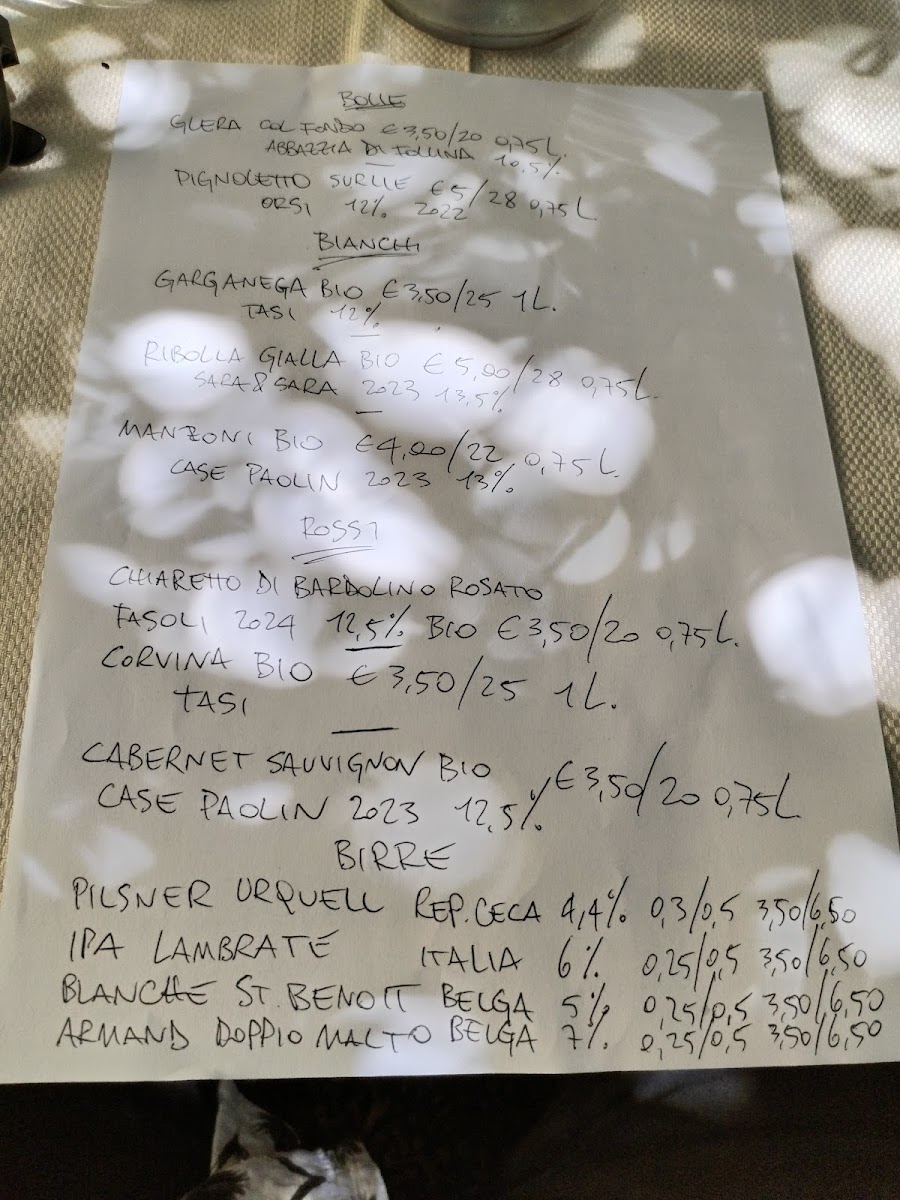 BOLLE
GLERA COL FONDO €3,50/20 0,75L.
ABBAZZIA DI FOLLINA 10,5%
PIGNOLETTO SURLIE €5/28 0,75L
ORSI 12% 2022
BIANCHI
GARGANEGA BIO €3,50/25 1L.
TASI 12%
RIBOLLA GIALLA BIO €5,00/28 0,75L.
SARA & SARA 2023 13,5%
MANZONI BIO €4,00/22 0,75L.
CASE PAOLIN 2023 13%
ROSSI
CHIARETTO DI BARDOLINO ROSATO
FASOLI 2024 12,5% BIO €3,50/20 0,75L.
CORVINA BIO €3,50/25 1L.
TASI
CABERNET SAUVIGNON BIO €3,50/20 0,75L
CASE PAOLIN 2023 12,5%
BIRRE
PILSNER URQUELL REP.CECA 4,4% 0,3/0,5 3,50/6,50
IPA LAMBRATE ITALIA 6% 0,25/0,5 3,50/6,50
BLANCHE ST. BENOIT BELGA 5% 0,25/0,5 3,50/6,50
ARMAND DOPPIO MALTO BELGA 7% 0,25/0,5 3,50/6,50